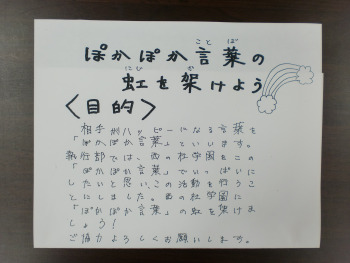 ぽかぽか言葉の
虹を架けよう
<目的>
相手がハッピーになる言葉を
「ぽかぽか言葉」といいます。
執行部では、西の杜学園をこの
「ぽかぽか言葉」でいっぱいに
したいと思い、この活動を行うこ
とにしました。西の杜学園に
「ぽかぽか言葉」の虹を架けま
しょう！
ご協力よろしくお願いします。